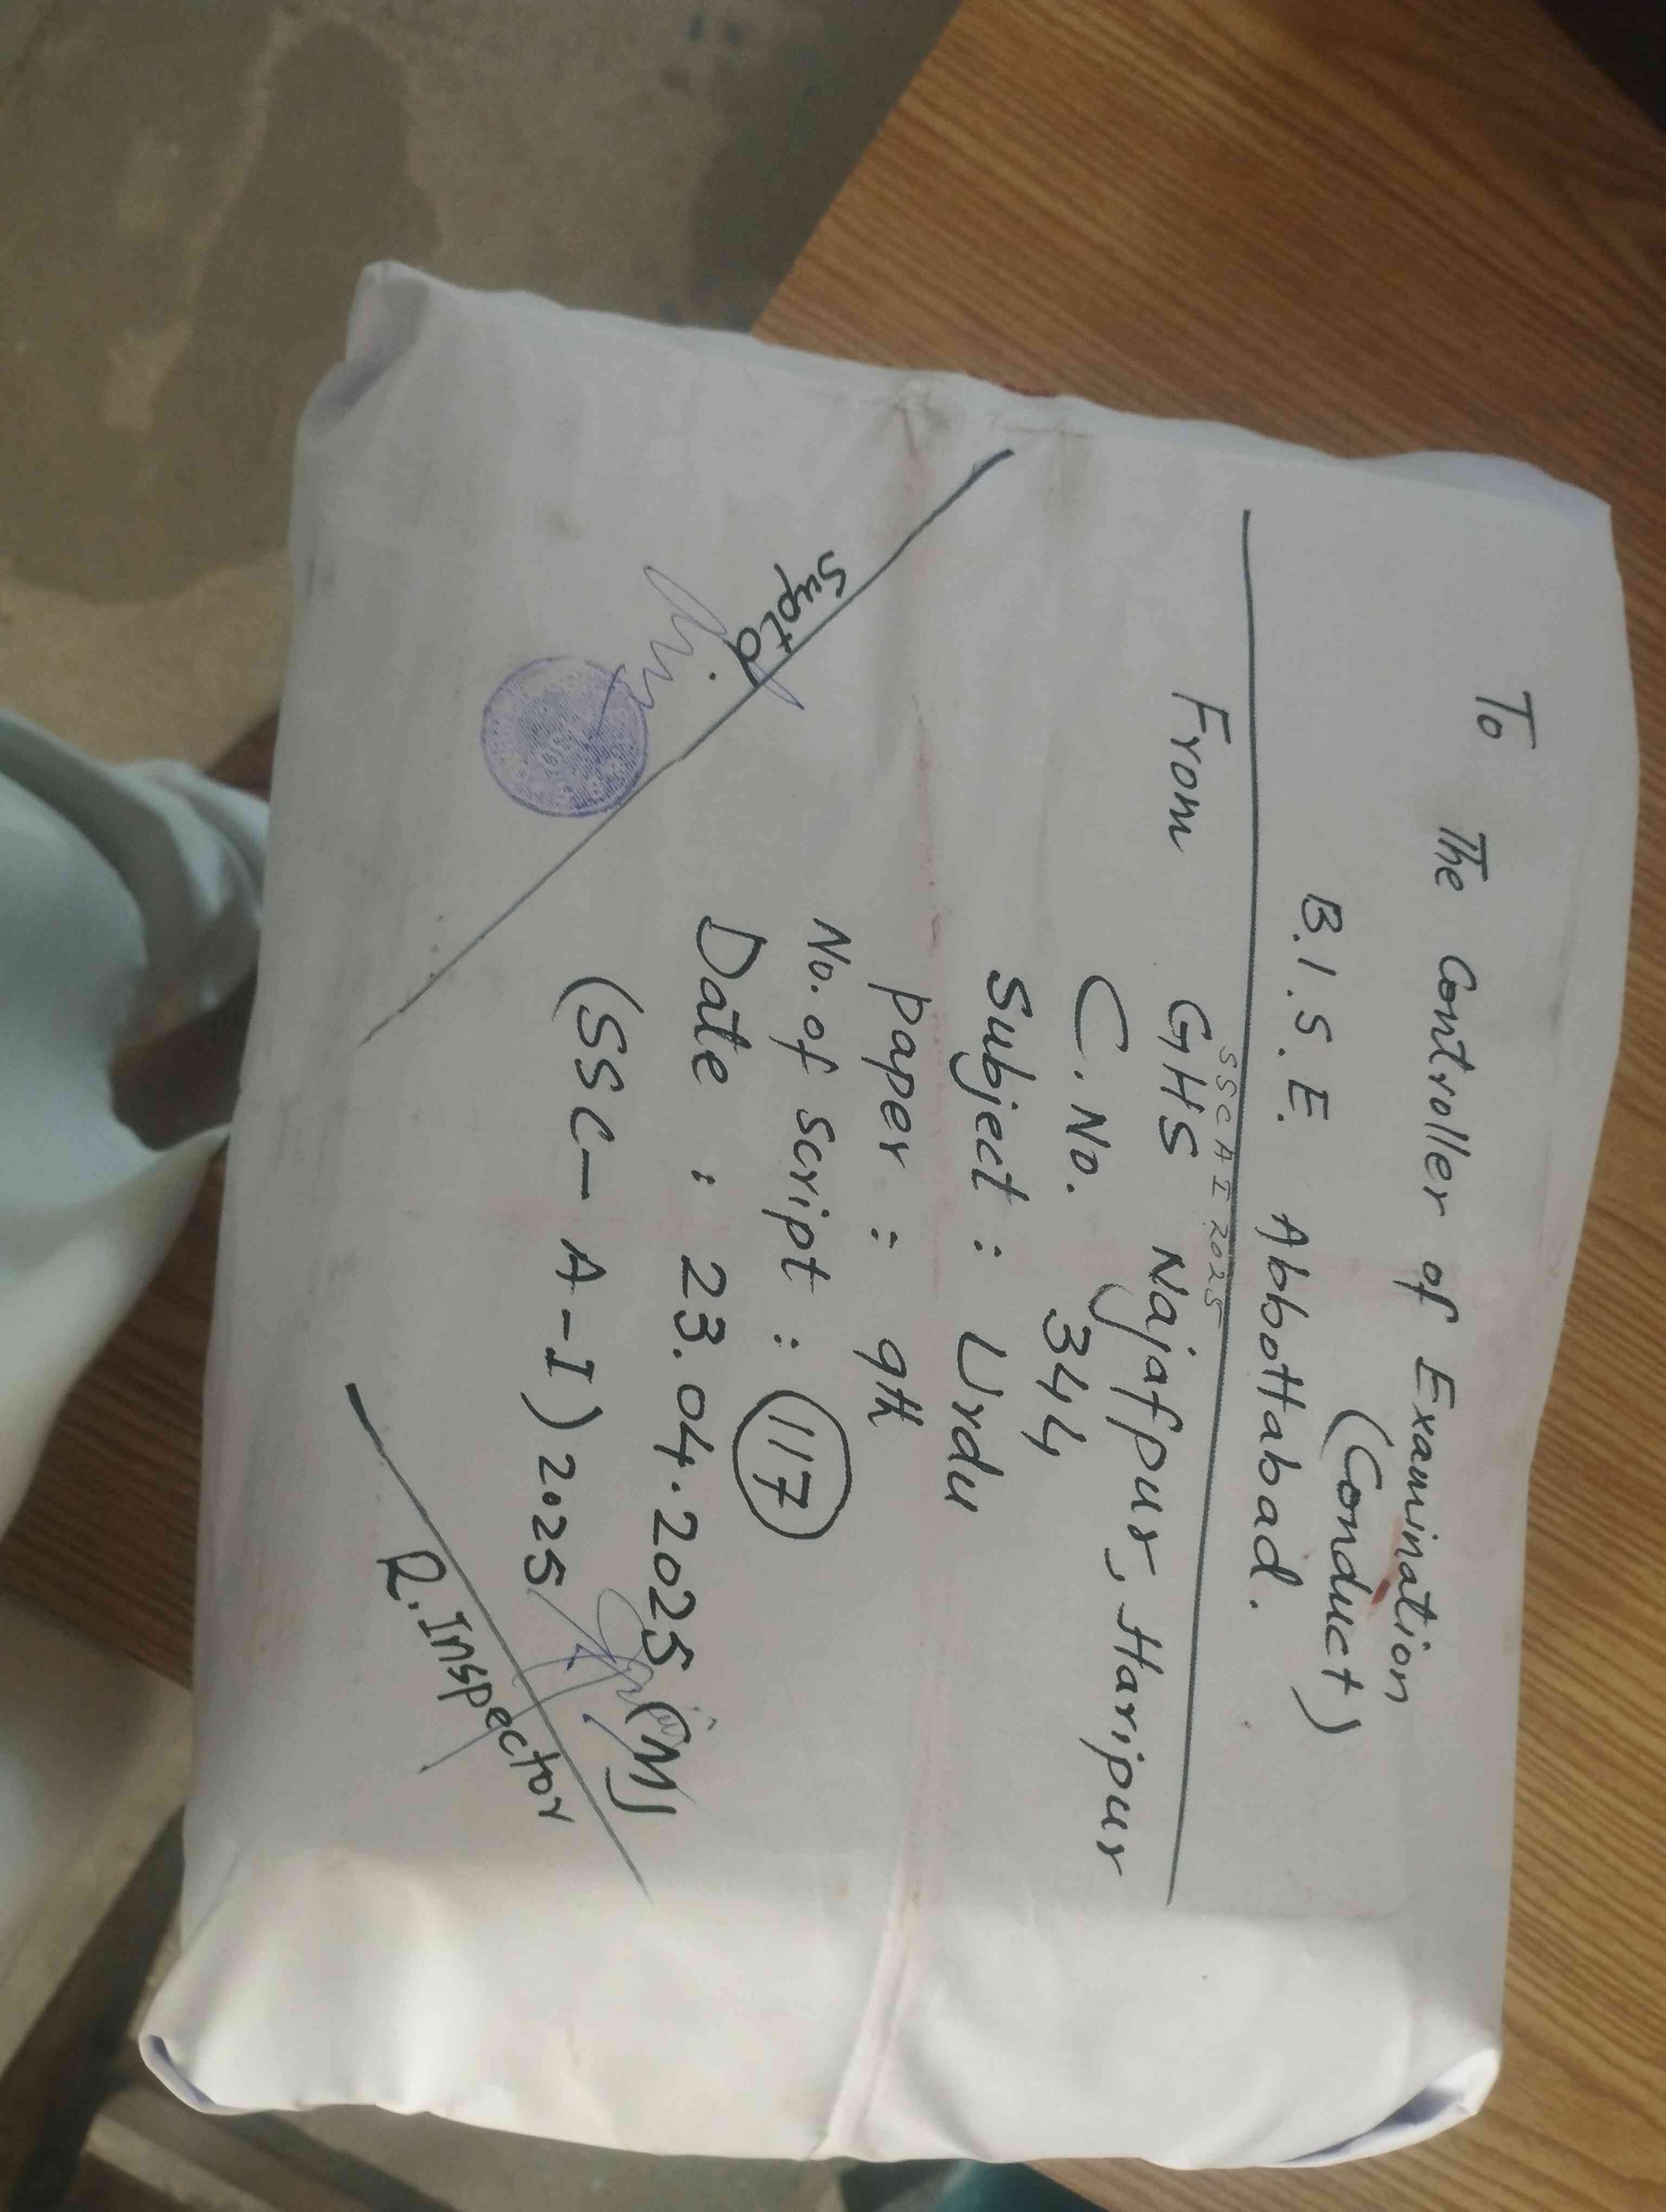 To The Controller of Examination
(Conduct)
B.I.S.E. Abbottabad.
SSC A I 2025
From GHS Najafpur, Haripur
C. No. 344
Subject : Urdu
paper : 9th
No. of Script : 117
Date : 23.04.2025 (M)
(SSC - A-I) 2025
Suptd
R. Inspector